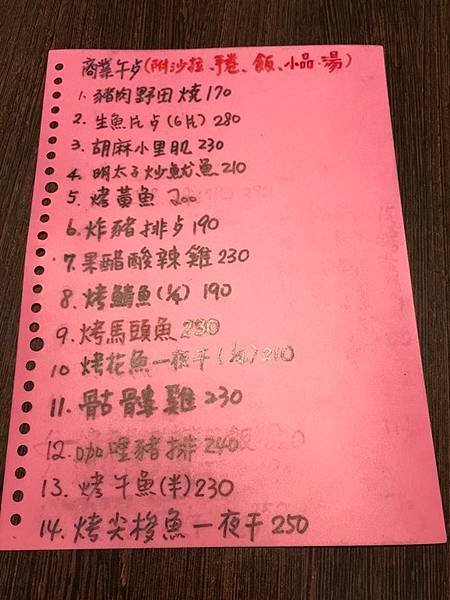 商業午歺(附沙拉、手卷、飯、小品.湯)
1. 豬肉野田燒 170
2. 生魚片歺(6片) 280
3. 胡麻小里肌 230
4. 明太子炒魷魚 210
5. 烤黃魚 200
6. 炸豬排歺 190
7. 果醋酸辣雞 230
8. 烤鯖魚(半) 190
9. 烤馬頭魚 230
10. 烤花魚一夜干(半) 210
11. 骷髏雞 230
12. 咖哩豬排 240
13. 烤午魚(半) 230
14. 烤尖梭魚一夜干 250